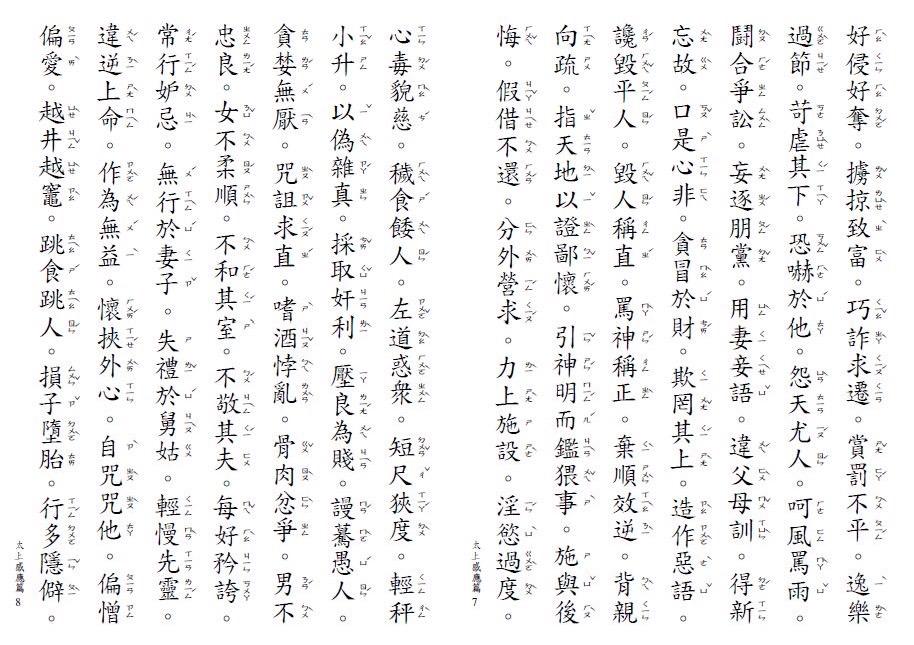 好侵好奪。擄掠致富。巧詐求遷。賞罰不平。逸樂
過節。苛虐其下。恐嚇於他。怨天尤人。呵風罵雨。
鬪合爭訟。妄逐朋黨。用妻妾語。違父母訓。得新
忘故。口是心非。貪冒於財。欺罔其上。造作惡語。
讒毀平人。毀人稱直。罵神稱正。棄順效逆。背親
向疏。指天地以證鄙懷。引神明而鑑猥事。施與後
悔。假借不還。分外營求。力上施設。淫慾過度。
太上感應篇 7
心毒貌慈。穢食餧人。左道惑衆。短尺狹度。輕秤
小升。以偽雜真。採取奸利。壓良為賤。謾驀愚人。
貪婪無厭。咒詛求直。嗜酒悖亂。骨肉忿爭。男不
忠良。女不柔順。不和其室。不敬其夫。每好矜誇。
常行妒忌。無行於妻子。失禮於舅姑。輕慢先靈。
違逆上命。作為無益。懷挾外心。自咒咒他。偏憎
偏愛。越井越竈。跳食跳人。損子墮胎。行多隱僻。
太上感應篇 8